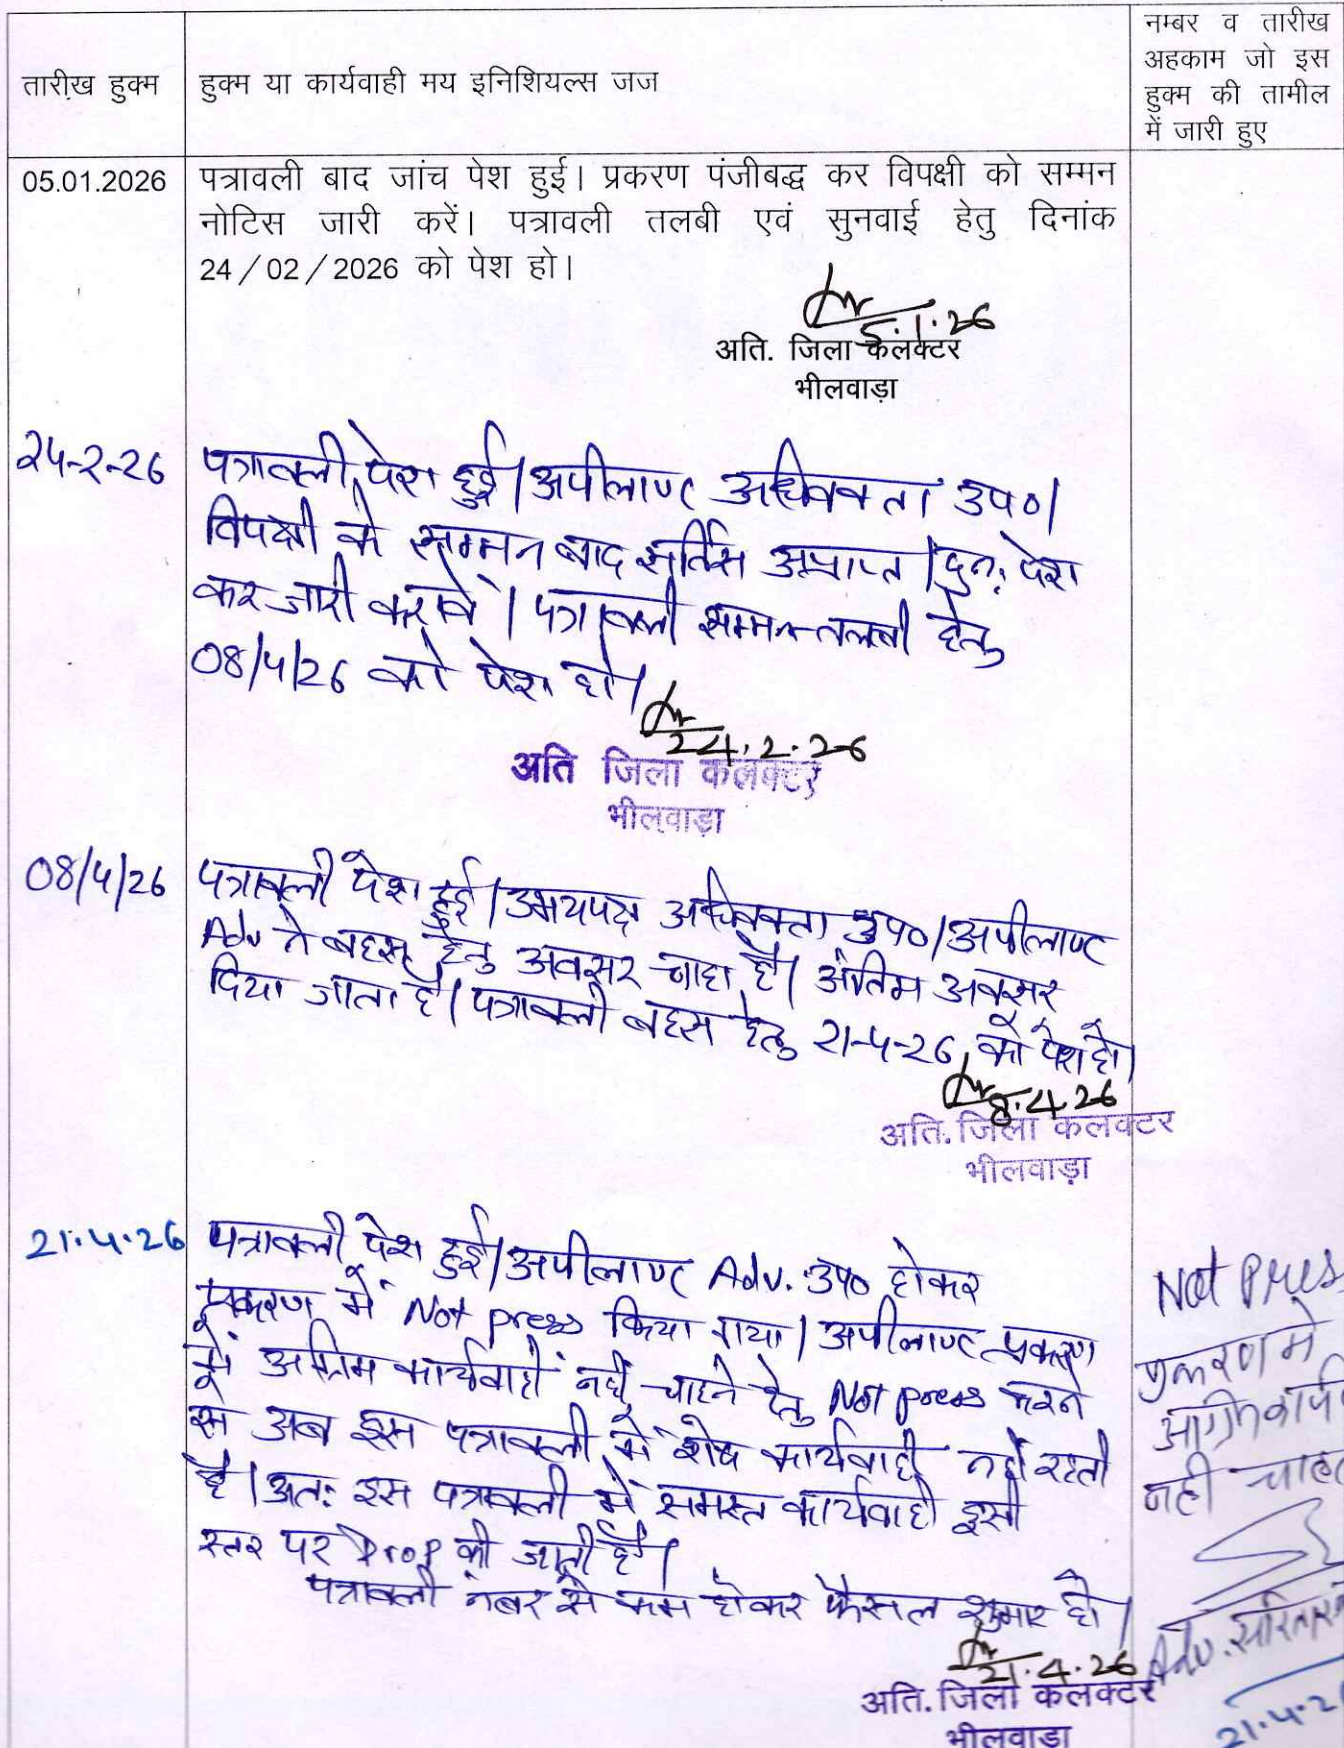 तारीख़ हुक्म
हुक्म या कार्यवाही मय इनिशियल्स जज
नम्बर व तारीख
अहकाम जो इस
हुक्म की तामील
में जारी हुए
05.01.2026
पत्रावली बाद जांच पेश हुई। प्रकरण पंजीबद्ध कर विपक्षी को सम्मन
नोटिस जारी करें। पत्रावली तलबी एवं सुनवाई हेतु दिनांक
24/02/2026 को पेश हो।
5.1.26
अति. जिला कलक्टर
भीलवाड़ा
24-2-26
पत्रावली पेश हुई। अपीलाण्ट अधिवक्ता उप०।
विपक्षी के सम्मन बाद सर्विस अप्राप्त। पुनः पेश
कर जारी करावे। पत्रावली सम्मन तलबी हेतु
08/4/26 को पेश हो।
24.2.26
अति जिला कलक्टर
भीलवाड़ा
08/4/26
पत्रावली पेश हुई। उभयपक्ष अधिवक्ता उप०। अपीलाण्ट
Adv ने बहस हेतु अवसर चाहा है। अंतिम अवसर
दिया जाता है। पत्रावली बहस हेतु 21-4-26 को पेश हो।
8.4.26
अति. जिला कलक्टर
भीलवाड़ा
21.4.26
पत्रावली पेश हुई। अपीलाण्ट Adv. उप० होकर
प्रकरण में Not press किया गया। अपीलाण्ट प्रकरण
में अग्रिम कार्यवाही नहीं चाहने हेतु Not press करने
से अब इस पत्रावली में शेष कार्यवाही नहीं रहती
है। अतः इस पत्रावली में समस्त कार्यवाही इसी
स्तर पर Drop की जाती है।
पत्रावली नंबर से कम होकर फैसल शुमार हो।
21.4.26
अति. जिला कलक्टर
भीलवाड़ा
Not Press
प्रकरण मे
नही
Adv.
21.4.2